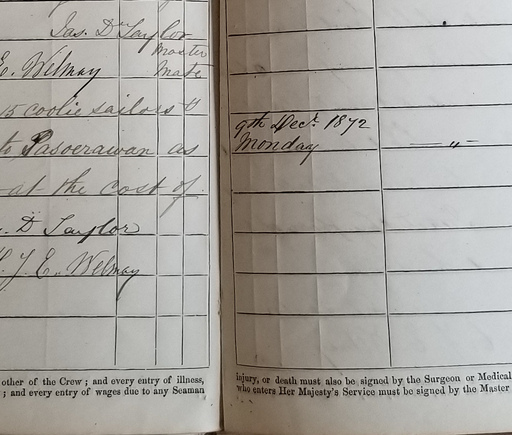 Jas. D. Taylor
Master
E. Welmay Mate
15 coolie sailors &
to Pasoerawan as
at the cost of
. D Taylor
H. J. E. Welmay
other of the Crew ; and every entry of illness,
; and every entry of wages due to any Seaman
9th Decr. 1872 
Monday — " —
injury, or death must also be signed by the Surgeon or Medical
who enters Her Majesty's Service must be signed by the Master